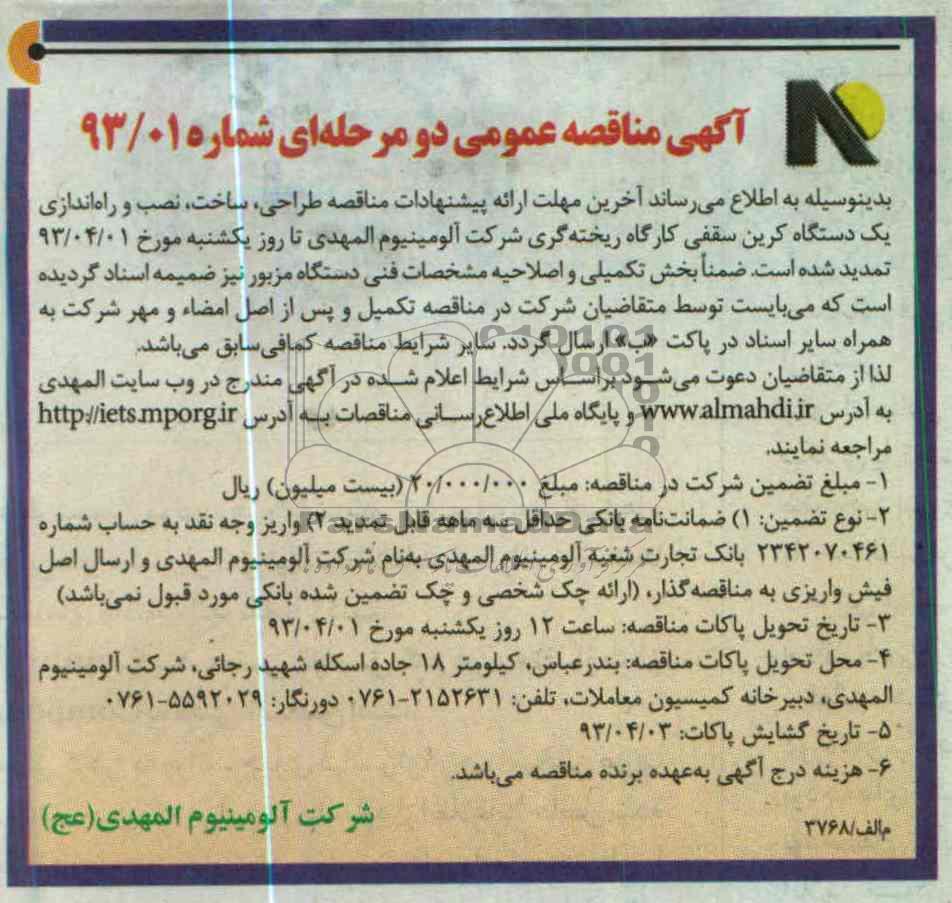 آگهی مناقصه عمومی دو مرحله‌ای شماره ۹۳/۰۱
بدینوسیله به اطلاع می‌رساند آخرین مهلت ارائه پیشنهادات مناقصه طراحی، ساخت، نصب و راه‌اندازی
یک دستگاه کرین سقفی کارگاه ریخته‌گری شرکت آلومینیوم المهدی تا روز یکشنبه مورخ ۹۳/۰۴/۰۱
تمدید شده است. ضمناً بخش تکمیلی و اصلاحیه مشخصات فنی دستگاه مزبور نیز ضمیمه اسناد گردیده
است که می‌بایست توسط متقاضیان شرکت در مناقصه تکمیل و پس از اصل امضاء و مهر شرکت به
همراه سایر اسناد در پاکت «ب» ارسال گردد. سایر شرایط مناقصه کمافی‌سابق می‌باشد.
لذا از متقاضیان دعوت می‌شود براساس شرایط اعلام شده در آگهی مندرج در وب سایت المهدی
به آدرس www.almahdi.ir و پایگاه ملی اطلاع‌رسانی مناقصات به آدرس http://iets.mporg.ir
مراجعه نمایند.
۱- مبلغ تضمین شرکت در مناقصه: مبلغ ۲۰/۰۰۰/۰۰۰ (بیست میلیون) ریال
۲- نوع تضمین: ۱) ضمانت‌نامه بانکی حداقل سه ماهه قابل تمدید ۲) واریز وجه نقد به حساب شماره
۲۳۴۲۰۷۰۴۶۱ بانک تجارت شعبه آلومینیوم المهدی به‌نام شرکت آلومینیوم المهدی و ارسال اصل
فیش واریزی به مناقصه‌گذار، (ارائه چک شخصی و چک تضمین شده بانکی مورد قبول نمی‌باشد)
۳- تاریخ تحویل پاکات مناقصه: ساعت ۱۲ روز یکشنبه مورخ ۹۳/۰۴/۰۱
۴- محل تحویل پاکات مناقصه: بندرعباس، کیلومتر ۱۸ جاده اسکله شهید رجائی، شرکت آلومینیوم
المهدی، دبیرخانه کمیسیون معاملات، تلفن: ۲۱۵۲۶۳۱-۰۷۶۱ دورنگار: ۵۵۹۲۰۲۹-۰۷۶۱
۵- تاریخ گشایش پاکات: ۹۳/۰۴/۰۳
۶- هزینه درج آگهی به‌عهده برنده مناقصه می‌باشد.
شرکت آلومینیوم المهدی(عج)
م‌الف/۳۷۶۸
ParsNamadData